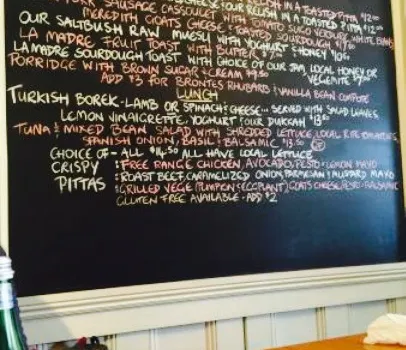 CHEESE & OUR RELISH IN A TOASTED PITTA $12.50
PORK SAUSAGE CASSOULET WITH TOMATO SUGO VERDURE, WHITE BEANS
MEREDITH GOATS CHEESE & TOASTED SOURDOUGH
OUR SALTBUSH RAW MUESLI WITH YOGHURT & HONEY
LA MADRE FRUIT TOAST WITH BUTTER
LA MADRE SOURDOUGH TOAST WITH CHOICE OF OUR JAM, LOCAL HONEY OR
VEGEMITE
PORRIDGE WITH BROWN SUGAR & CREAM
ADD $3 FOR BRONTES RHUBARB & VANILLA BEAN COMPOTE
LUNCH
TURKISH BOREK - LAMB OR SPINACH & CHEESE... SERVED WITH SALAD LEAVES
LEMON VINAIGRETTE, YOGHURT & OUR DUKKAH $13.50
TUNA & MIXED BEAN SALAD WITH SHREDDED LETTUCE, LOCAL RIPE TOMATOES
SPANISH ONION, BASIL & BALSAMIC $13.50
CHOICE OF - ALL $14.50 ALL HAVE LOCAL LETTUCE
CRISPY : FREE RANGE CHICKEN, AVOCADO, PESTO & LEMON MAYO
PITTAS : ROAST BEEF, CARAMELIZED ONION, PARMESAN & MUSTARD MAYO
: GRILLED VEGE (PUMPKIN & EGGPLANT) GOATS CHEESE, PESTO & BALSAMIC
GLUTEN FREE AVAILABLE - ADD $2